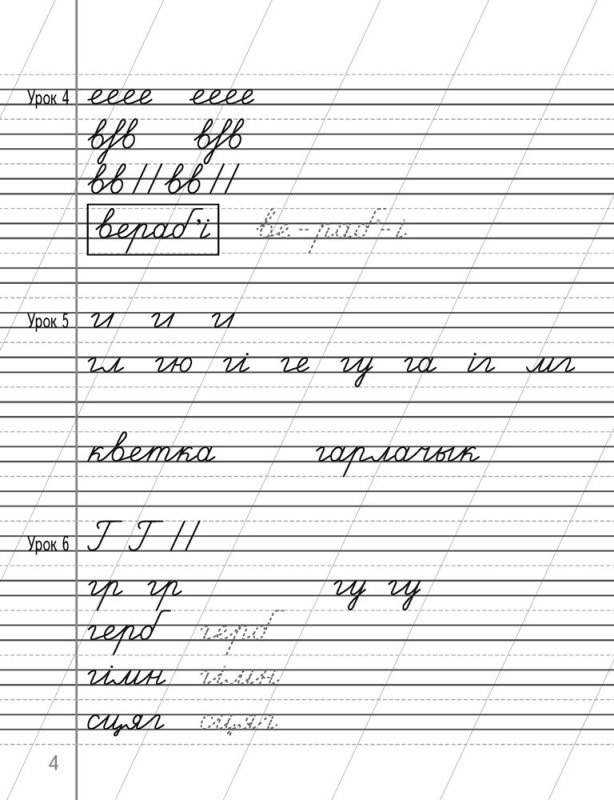 Урок 4 ееее ееее
вfв вfв
вв // вв //
вераб'і ве-раб'-і
Урок 5 г г г
гл гю гі ге гу га іг мг
кветка гарлачык
Урок 6 Г Г //
гр гр гу гу
герб герб
гімн гімн
сцяг сцяг
4